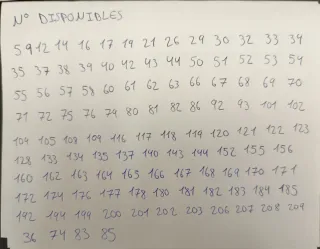 Nº DISPONIBLES
5 9 12 14 16 17 19 21 26 29 30 32 33 34
35 37 38 39 40 42 43 44 50 51 52 53 54
55 56 57 58 60 61 62 63 66 67 68 69 70
71 72 75 76 74 80 81 82 86 92 93 101 102
104 105 108 109 116 117 118 119 120 121 122 123
128 133 134 135 137 140 143 144 152 155 156
160 162 163 164 165 166 167 168 169 170 171
172 174 176 177 178 180 181 182 183 184 185
192 194 199 200 201 202 203 206 207 208 209
36 74 83 85